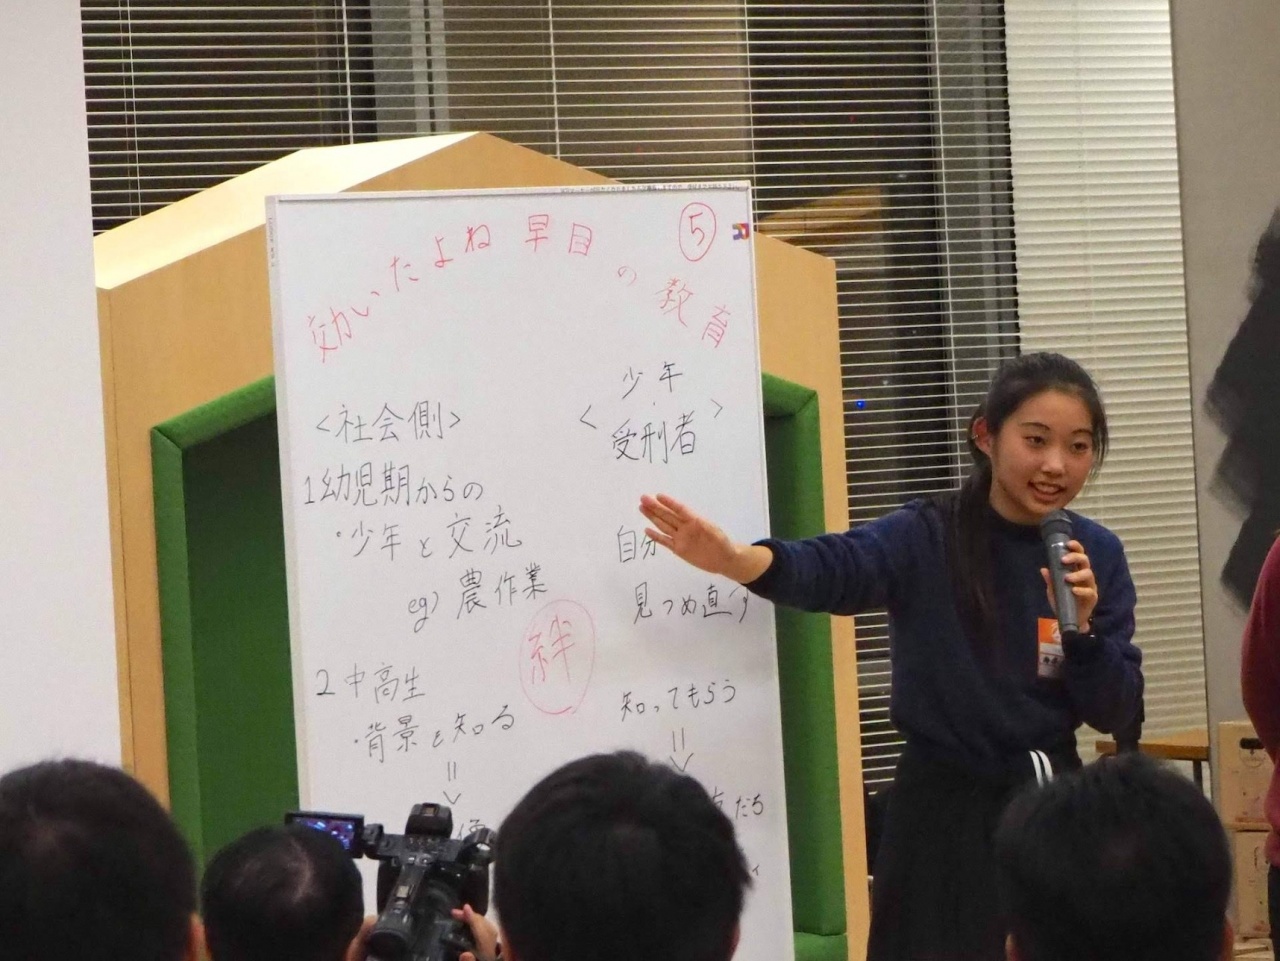 効いたよね早目の教育
⑤
<社会側>
1 幼児期からの
・少年と交流
eg) 農作業
2 中高生
・背景を知る
絆
少年
<受刑者>
自分
見つめ直す
知ってもらう
だち